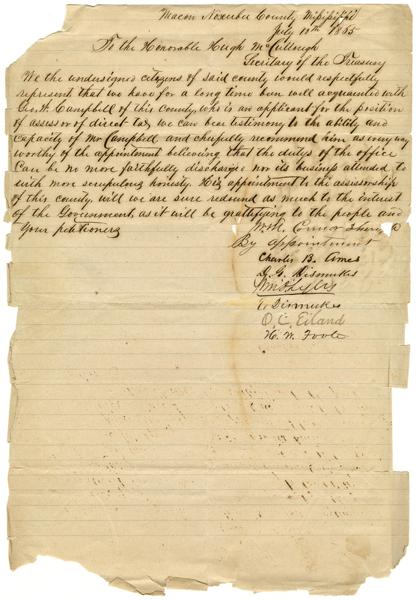 Macon Noxubee County Missisippi
July 10th 1865
To the Honorable Hugh McCullough
Secritary of the Treasury
We the undersigned citizens of said county would respectfully
represent that we have for a long time ben well acquainted with
Geo. W. Campbell of this County, who is an applicant for the position
of assessor of direct tax, we can bear testimony to the ability and
capacity of Mr Campbell and cheerfully recommend him as in every way
worthy of the appointment believing that the dutys of the office
Can be no more faithfully discharged nor its business attended to
with more scrupulous honesty. His appointment to the assessorship
of this county will we are sure redound as much to the interest
of the Government, as it will be gratifying to the people and
your petitioners
Connor Sheriff
By appointment
Charles B. Ames
D. G. Dismukes
E. Dismukes
O. C. Eiland
H. W. Foote